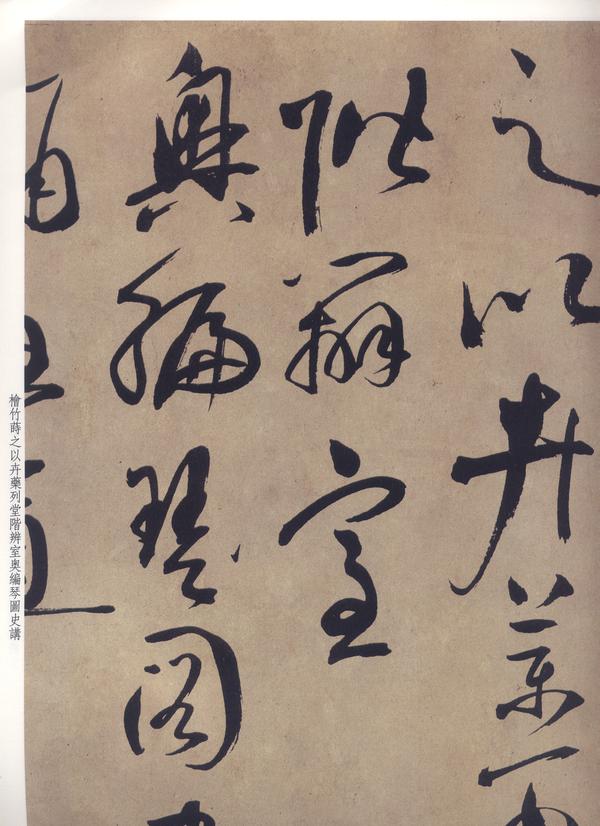 之以卉藥
階辨室
奧編琴圖
檜竹蒔之以卉藥列堂階辨室奧編琴圖史講